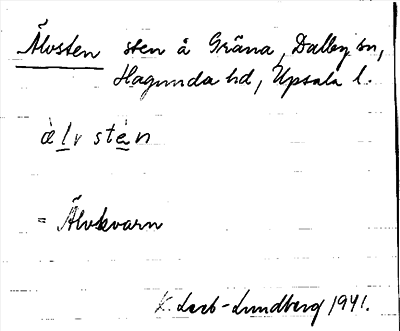 Älvsten sten å Gräna, Dalby sn,
Hagunda hd, Upsala l.
ὰlv stὲn
= Älvkvarn
K. Leeb-Lundberg 1941.